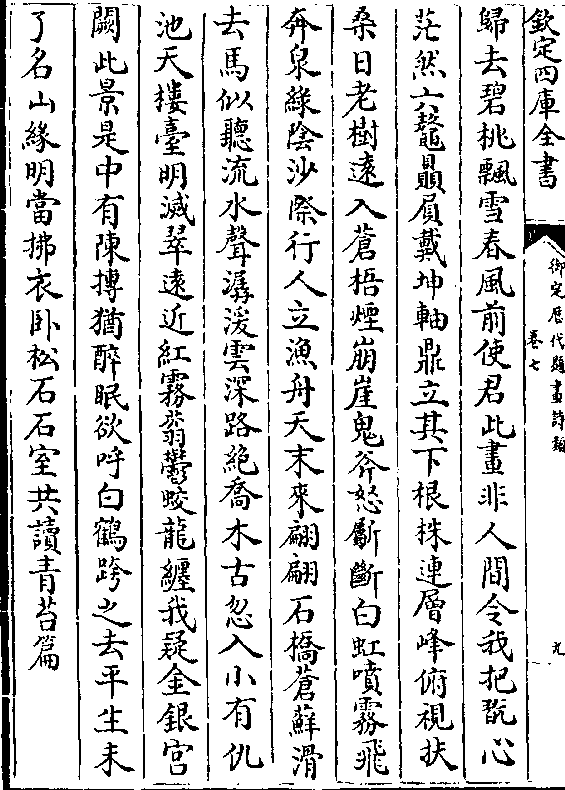 欽定四庫全書
御定歷代題畫詩類
卷七
九
歸去碧桃飄雪春風前使君此畫非人間令我把翫心
茫然六鼇贔屓戴坤軸鼎立其下根株連層峰俯視扶
桑日老樹遠入蒼梧煙崩崖鬼斧怒斸斷白虹噴霧飛
奔泉綠陰沙際行人立漁舟天末來翩翩石橋蒼蘚滑
去馬似聽流水聲潺湲雲深路絶喬木古忽入小有仇
池天樓臺明滅翠遠近紅霧蓊鬱蛟龍纏我疑金銀宮
闕此景是中有陳摶猶醉眠欲呼白鶴跨之去平生未
了名山緣明當拂衣卧松石石室共讀青苔篇